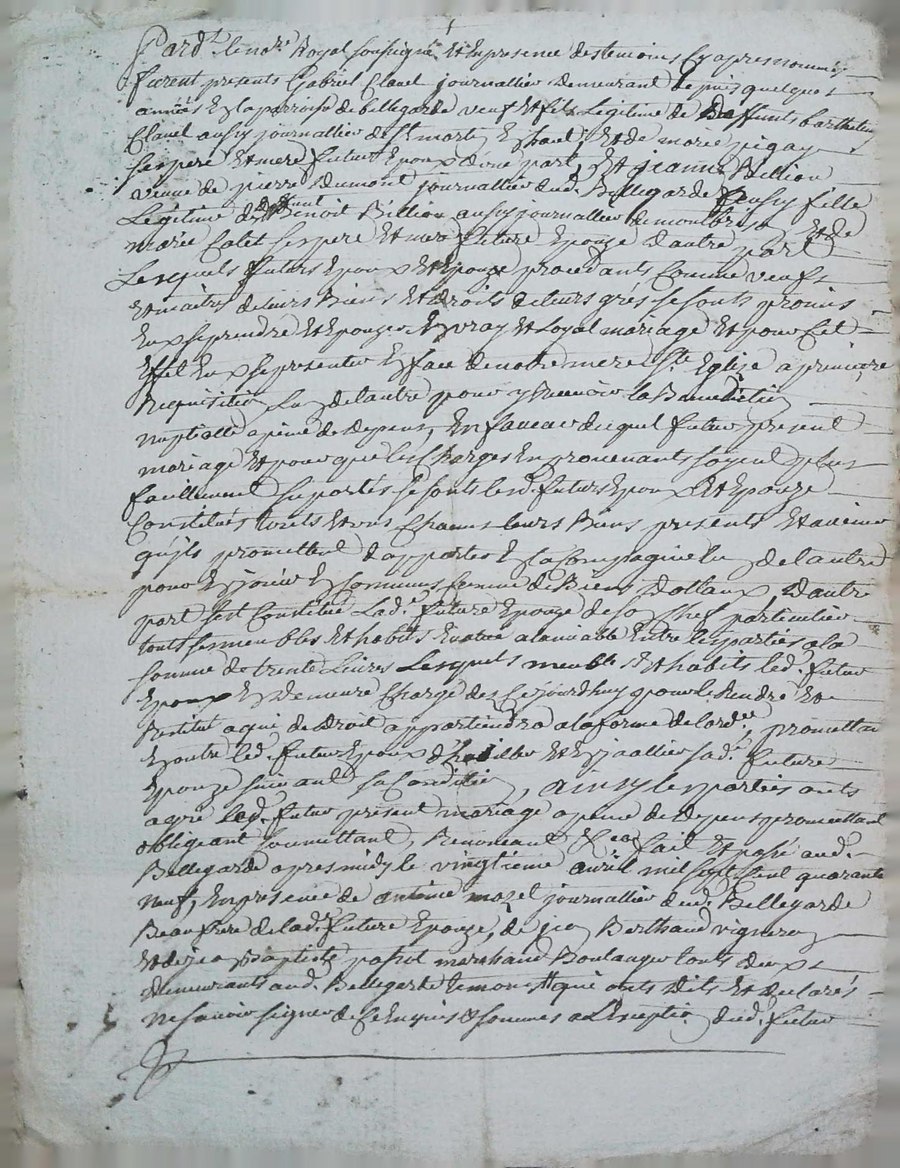 Pard.t le no.re Royal soussigné Et En presence des temoins Cy apres nommés
furent presents Gabriel Clauel journallier Demeurant depuis quelques
années En la parroisse de bellegarde veuf Et fils Legitime de Deffunts barthelemy
Clauel aussy journallier de St morte En haut Et de marie pigay
ses pere Et mere futur Epoux d'une part, Et jeanne Billion
veuue de pierre Dumont journallier dud. Bellegarde aussy fille
Legitime de deffunt Benoit Billion aussy journallier de montbrison Et de
marie Colet ses pere Et mere future Epouze d'autre part
Lesquels futurs Epoux Et Epouze procedants Comme veufs
Et maitres de leurs Biens Et droits de leurs grés se sonts promis
Eux se prendre Et Epouzer En vray Et Loyal mariage Et pour Cet
Effet Eux se presenter En face de notre mere Ste Eglize a premiere
Requisition Lun de l'autre pour y Receuoir la Benediction
nuptialle a peine de depens, En faueur duquel futur present
mariage Et pour que les Charges En prouenants soyent plus
facillement suportés se sonts lesd. futurs Epoux Et Epouze
Constitués touts Et uns Chacuns leurs Biens presents Et auenir
qu'ils promettent d'apporter En la Compagnie Lun de l'autre
pour En jouir En Communs Comme de Biens Dottaux, D'autre
part s'est Constitué Lad.e future Epouze de son Chef particulier
touts ses meubles Et habits Eualué a lamiable Entre les parties a la
somme de trente Liures Lesquels meubles Et habits led. futur
Epoux En Demeure Chargé des Cejourdhuy pour le Rendre Et
Restitué a qui de Droit appartiendra a la forme de lord.ce, promettan
En outre led. futur Epoux d'habiller Et Enjoallier sad.e future
Epouze suiuant sa Condition, ainsy les parties onts
agrée led. futur present mariage a peine de depens promettant
obligeant soumettant, Renonceant &ca fait Et passé aud.
Bellegarde apres midy le vingtième auril mil sept Cent quarante
neuf, En presence de antoine mazet journallier dud. Bellegarde
Beau frere de lad. future Epouze, de jean Berthaud vigneron
Et de jean Baptiste passot marchand Boulanger touts deux
demeurants aud. Bellegarde temoins qui onts dits Et declarés
ne sauoir signer de Ce Enquis & sommés a L'exception dud. futur